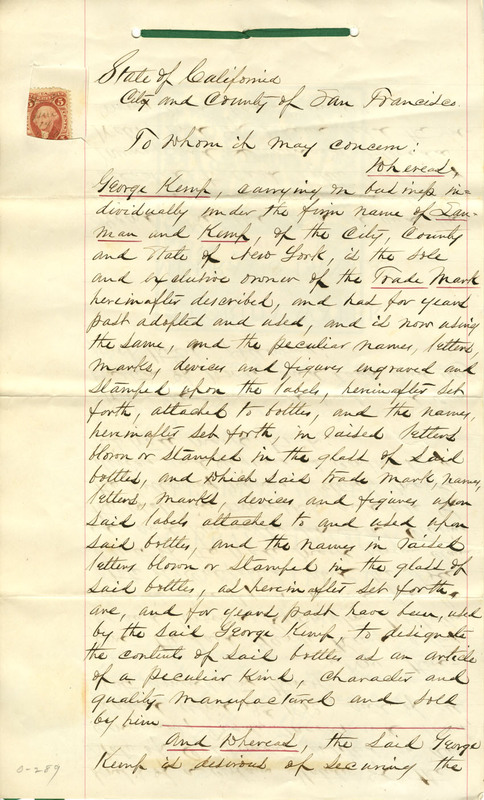 State of California
City and County of San Francisco.
To Whom it may concern:
Whereas,
George Kemp, carrying on business in=
dividually under the firm name of Lan-
man and Kemp, of the City, County
and State of New York, is the sole
and exclusive owner of the Trade Mark
hereinafter described, and has for years
past adopted and used, and is now using
the same, and the peculiar names, letters,
marks, devices and figures engraved and
stamped upon the labels, hereinafter set
forth, attached to bottles, and the names,
hereinafter set forth, in raised letters
blown or stamped in the glass of said
bottles, and which said trade mark, names,
letters, marks, devices and figures upon
said labels attached to and used upon
said bottles, and the names in raised
letters blown or stamped in the glass of
said bottles, as hereinafter set forth,
are, and for years past have been, used
by the said George Kemp, to designate
the contents of said bottles as an article
of a peculiar kind, character and
quality manufactured and sold
by him
And Whereas, the said George
Kemp is desirous of securing the
0-289
5 5